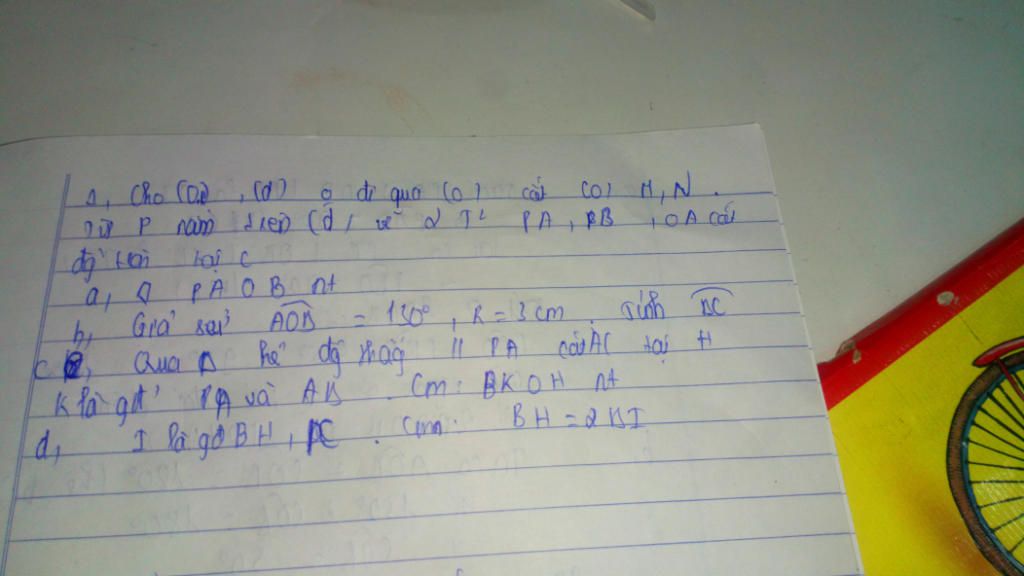 1, Cho (O;R), (d) ko đi qua (O) cắt (O) M, N.
Từ P nằm trên (d) vẽ 2 T² PA, PB, OA cắt
đg tròn tại C
a, ◊ PAOB nt
b, Giả sử AOB = 130°, R = 3 cm. Tính BC
c, Qua B kẻ đg thẳg // PA cắt AC tại H
K là gđ PO và AB. Cm: BKOH nt
d, I là gđ BH, PC. Cm: BH = 2BI